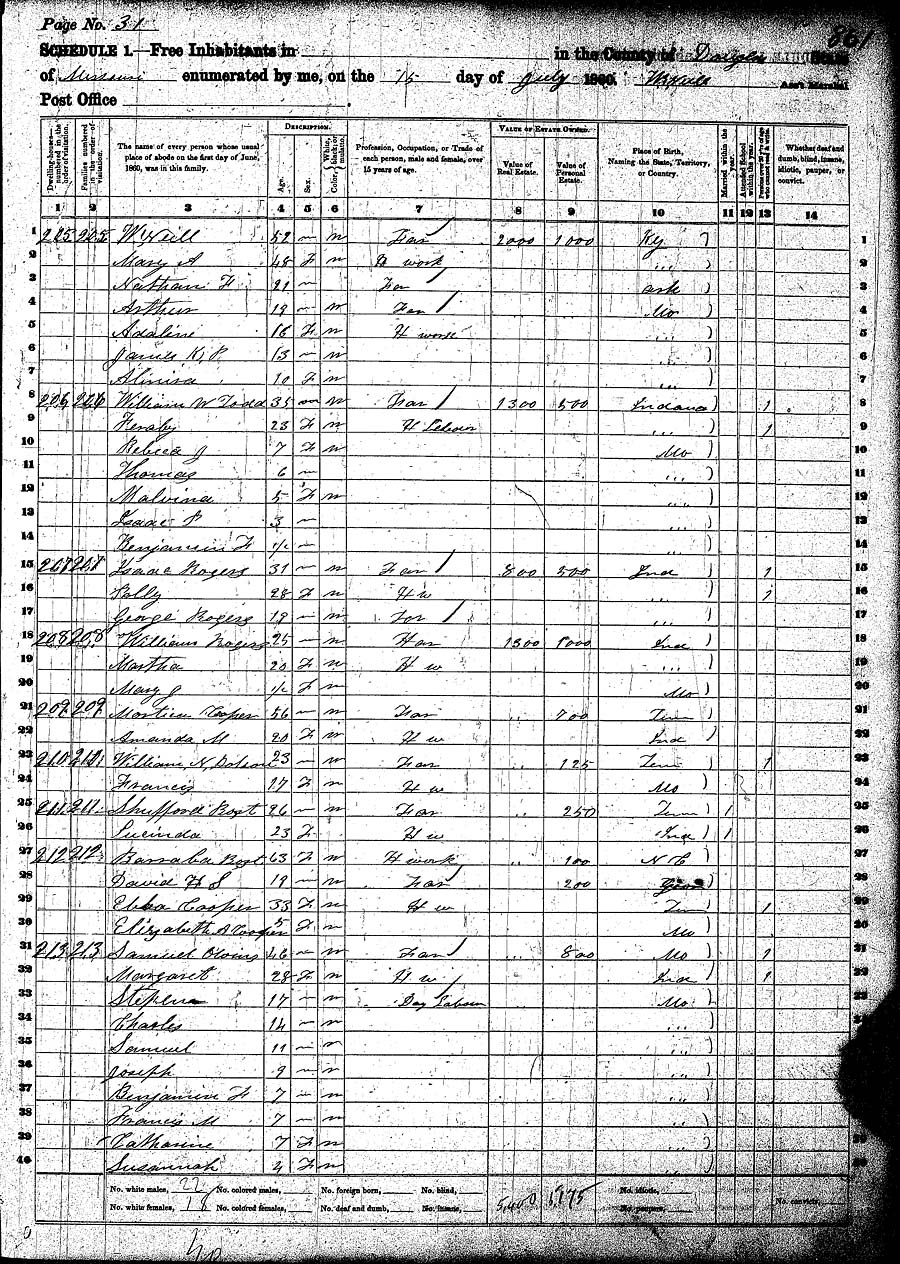 Page No. 31
861
SCHEDULE 1.—Free Inhabitants in in the County of Douglas State
of Missouri enumerated by me, on the 15 day of July 1860. Ass't Marshal
Post Office .
Dwelling-houses—numbered in the order of visitation.
Families numbered in the order of visitation.
The name of every person whose usual place of abode on the first day of June, 1860, was in this family.
DESCRIPTION.
Age.
Sex.
Color, White, black, or mulatto.
Profession, Occupation, or Trade of each person, male and female, over 15 years of age.
VALUE OF ESTATE OWNED.
Value of Real Estate.
Value of Personal Estate.
Place of Birth, Naming the State, Territory, or Country.
Married within the year.
Attended School within the year.
Whether deaf and dumb, blind, insane, idiotic, pauper, or convict.
1 2 3 4 5 6 7 8 9 10 11 12 13 14
1 205 205 W Neill 52 — w Far 2000 1000 Ky 1
2 Mary A 48 F w H work ,,, 2
3 Nathan F 21 — Far ark 3
4 Arthur 19 — w Far Mo 4
5 Adaline 16 F w H work ,,, 5
6 James K. P. 13 — w ,,, 6
7 10 F w ,,, 7
8 206 206 William W Todd 35 — w Far 1300 500 Indiana 1 8
9 23 F w H ,,, 1 9
10 Rebeca J 7 F w Mo 10
11 Thomas 6 — ,,, 11
12 Malvina 5 F w ,,, 12
13 Isaac P 3 — ,,, 13
14 Benjamin F — ,,, 14
15 207 207 Isaac Rogers 31 — w Far 800 500 Ind 1 15
16 Polly 28 F w H w ,,, 1 16
17 George Rogers 19 — w Far ,,, 17
18 208 208 Williams Rogers 25 — w Far 1300 1000 Ind 18
19 Martha 20 F w H w ,,, 19
20 Mary J F w Mo 20
21 209 209 Cooper 56 — w Far ,, 700 Tenn 21
22 Amanda M 20 F w H w Ind 22
23 210 210 William N, Dotson 23 — w Far 125 Tenn 1 23
24 Francis 17 F w H w Mo 24
25 211 211 Shufford Bost 26 — w Far ,, 250 Tenn 1 25
26 Lucinda 23 F H w Ind 1 26
27 212 212 Barbaba Bost 63 F w H work ,, 100 N C 27
28 David H S 19 — w Far 200 28
29 Cooper 33 F w H w Tenn 1 29
30 Elizabeth A Cooper 5 F w Mo 30
31 213 213 Samuel 46 — w Far ,,, 800 Mo 1 31
32 Margaret 28 F w H w Ind 1 32
33 Stephen 17 — w Day Labour Mo 33
34 Charles 14 — w ,,,
35 Samuel 11 — w ,,,
36 Joseph 9 — w ,,,
37 Benjamin F 7 — w ,,,
38 Francis M 7 — w ,,,
39 Catharine 7 F w ,,, 39
40 Susannah 4 F w ,,,
No. white males, 22 No. colored males, No. foreign born, No. blind, 5,400 No. idiotic,
No. white females, 18 No. colored females, No. deaf and dumb, No. insane, No. paupers, No. convicts,